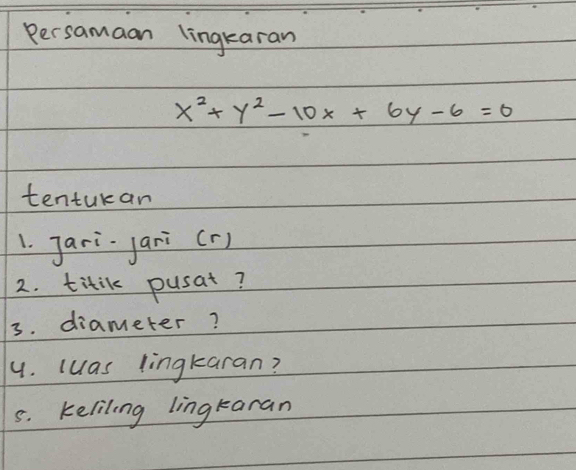 Persamaan lingkaran
x² + y² - 10x + 6y - 6 = 0
tentukan
1. Jari-jari (r)
2. titik pusat ?
3. diameter ?
4. luas lingkaran?
5. keliling lingkaran